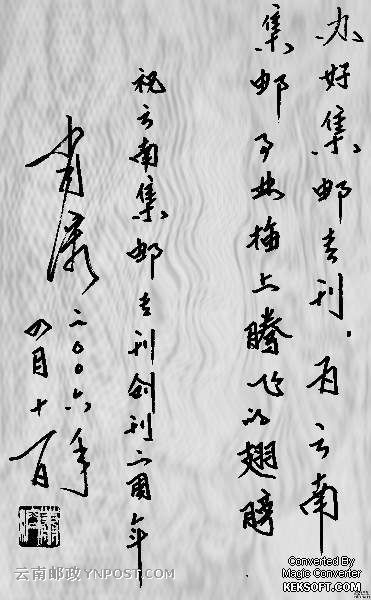 办好集邮专刊.为云南
集邮事业插上腾飞的翅膀
祝云南集邮专刊创刊二周年
二〇〇六年
四月十一日
云南邮政YNPOST.COM
Converted By
Magic Converter
KEKSOFT.COM